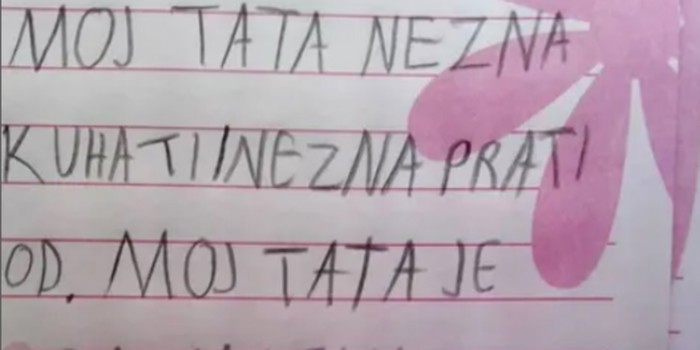 MOJ TATA NEZNA
KUHATI I NEZNA PRATI
OD. MOJ TATA JE